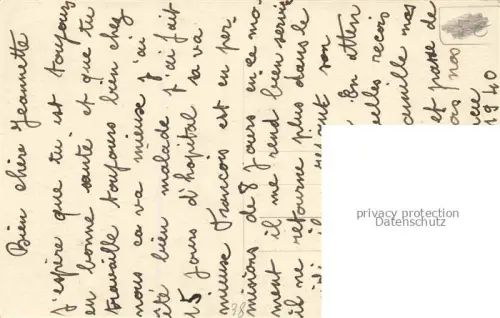 Bien chère Jeannette
J'espère que tu est toujours
en bonne santé et que tu
travaille toujours bien chez
nous ca va mieux j'ai
été bien malade j'ai fait
15 jours d'hopital sa va
mieux Francois est en per-
minions de 8 jours en ce mo-
ment il me rend bien service
il ne retourne plus dans le
son
En atten
elles recois
famille mes
et passe de
nos
1940
98
privacy protection
Datenschutz